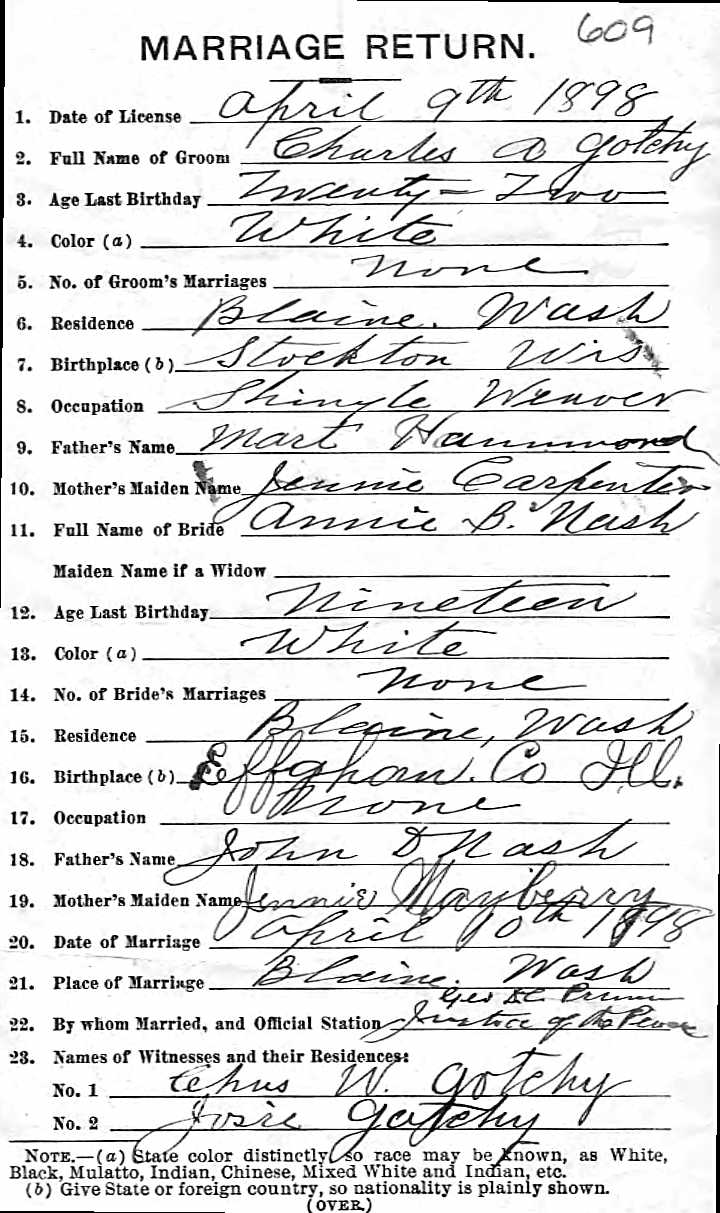 609
MARRIAGE RETURN.
1. Date of License April 9th 1898
2. Full Name of Groom Charles A Gotchy
3. Age Last Birthday Twenty-Two
4. Color (a) White
5. No. of Groom's Marriages none
6. Residence Blaine. Wash
7. Birthplace (b) Stockton Wis
8. Occupation Shingle Weaver
9. Father's Name Mart Hammond
10. Mother's Maiden Name Jennie Carpenter
11. Full Name of Bride Annie B. Nash
Maiden Name if a Widow
12. Age Last Birthday Nineteen
13. Color (a) White
14. No. of Bride's Marriages none
15. Residence Blaine, Wash
16. Birthplace (b) Effgham. Co Ill.
17. Occupation none
18. Father's Name John D Nash
19. Mother's Maiden Name Jennie Mayberry
20. Date of Marriage April 10th 1898
21. Place of Marriage Blaine. Wash
Geo
22. By whom Married, and Official Station Justice of the Peace
23. Names of Witnesses and their Residences:
No. 1 W. Gotchy
No. 2 Josie Gotchy
NOTE.—(a) State color distinctly so race may be known, as White,
Black, Mulatto, Indian, Chinese, Mixed White and Indian, etc.
(b) Give State or foreign country, so nationality is plainly shown.
(OVER.)